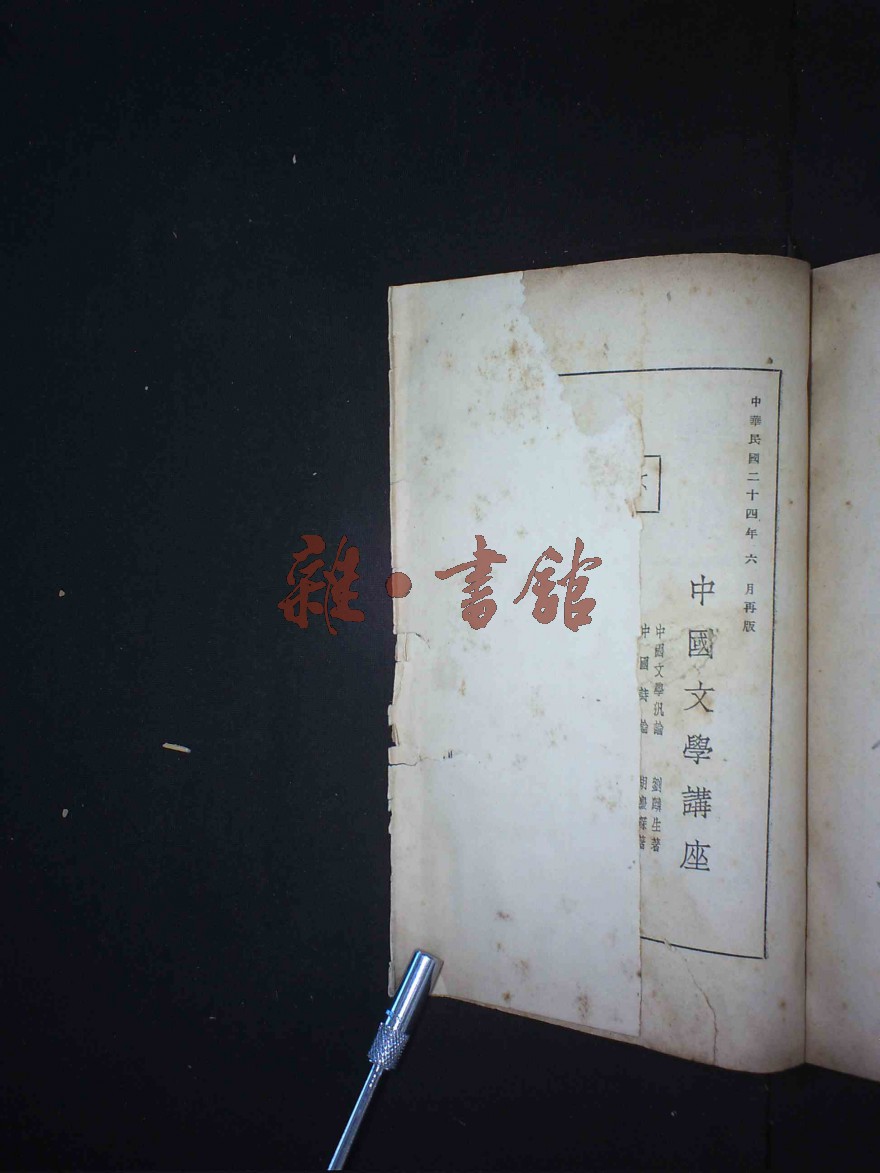 中華民國二十四年六月再版
中國文學講座
中國文學汎論 劉麟生著
中國 論 胡懷琛著
雜·書館